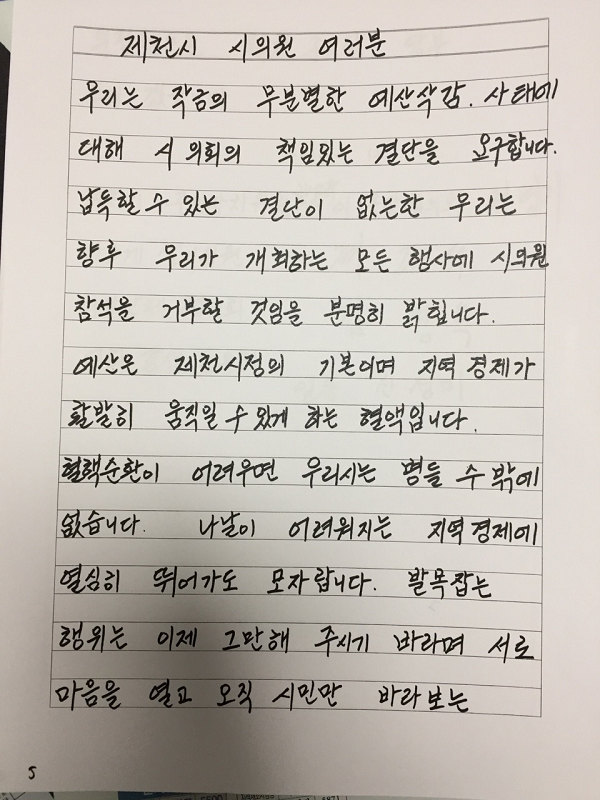 제천시 시의원 여러분
우리는 작금의 무분별한 예산삭감. 사태에
대해 시 의회의 책임있는 결단을 요구합니다.
납득할 수 있는 결단이 없는한 우리는
향후 우리가 개최하는 모든 행사에 시의원
참석을 거부할 것임을 분명히 밝힙니다.
예산은 제천시정의 기본이며 지역 경제가
활발히 움직일 수 있게 하는 혈액입니다.
혈액순환이 어려우면 우리시는 병들 수 밖에
없습니다. 나날이 어려워지는 지역 경제에
열심히 뛰어가도 모자랍니다. 발목잡는
행위는 이제 그만해 주시기 바라며 서로
마음을 열고 오직 시민만 바라보는
5